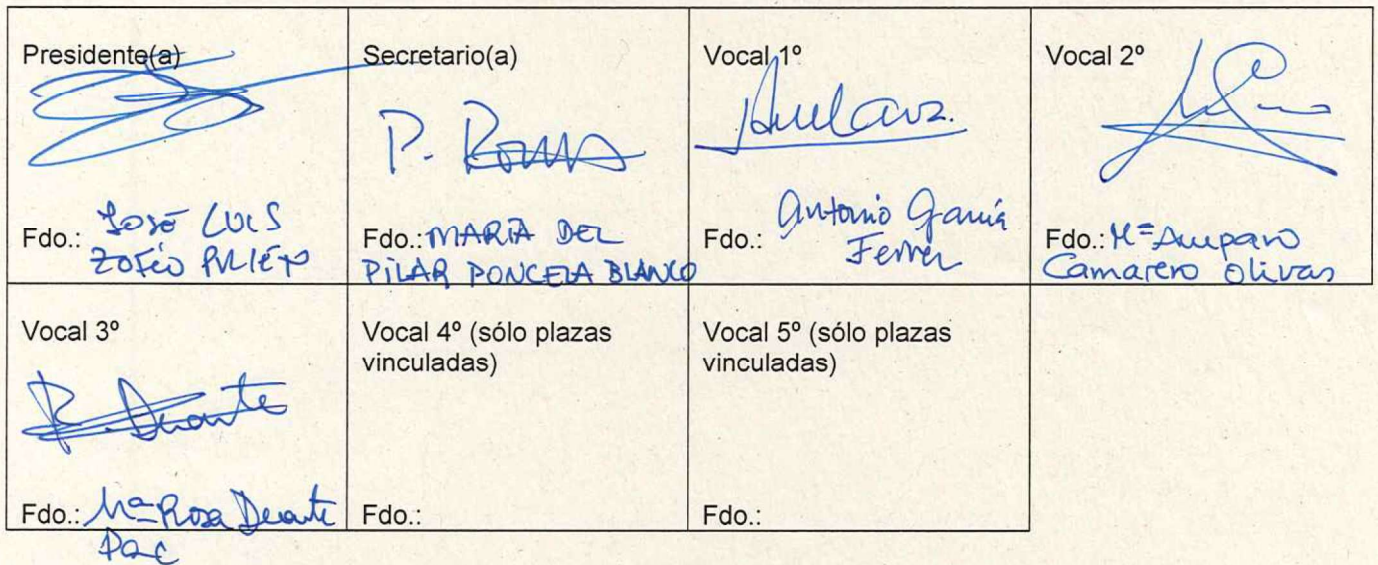 Presidente(a)
Fdo.: JOSÉ LUIS
ZOFÍO PRIETO
Secretario(a)
P. Poncela
Fdo.: MARÍA DEL
PILAR PONCELA BLANCO
Vocal 1º
Fdo.: Antonio García
Ferrer
Vocal 2º
Fdo.: Mª Amparo
Camarero Olivas
Vocal 3º
R. Duarte
Fdo.: Mª Rosa Duarte
Pac
Vocal 4º (sólo plazas
vinculadas)
Fdo.:
Vocal 5º (sólo plazas
vinculadas)
Fdo.: